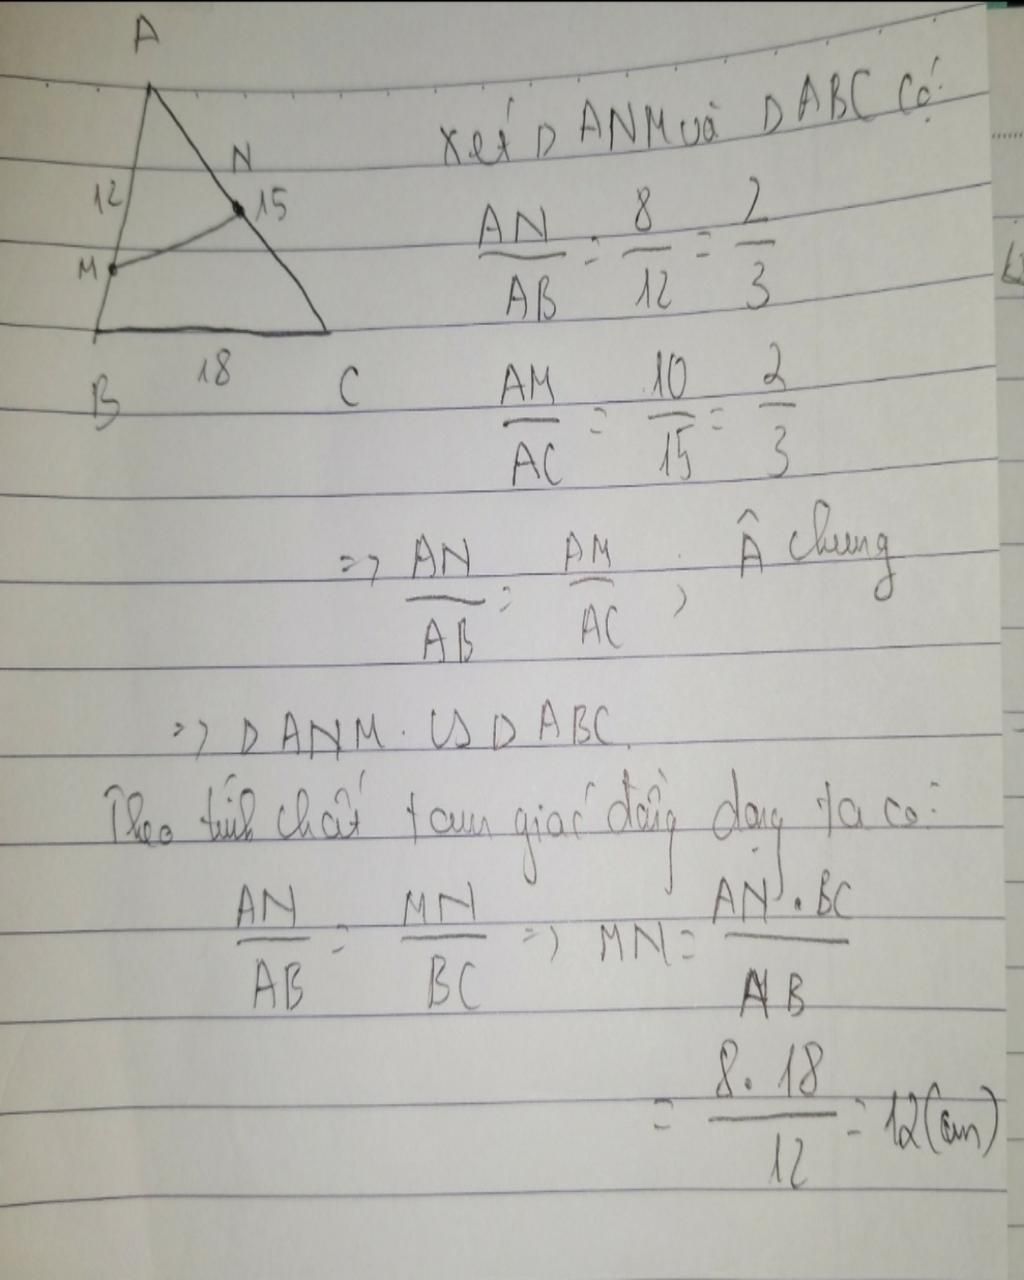 A
N
12
15
M
B
18
C
Xét Δ ANM và Δ ABC có:
AN/AB = 8/12 = 2/3
AM/AC = 10/15 = 2/3
=> AN/AB = AM/AC ; Â chung
=> Δ ANM ∽ Δ ABC.
Theo tính chất tam giác đồng dạng ta có:
AN/AB = MN/BC => MN = AN . BC/AB
= 8. 18/12 = 12(cm)